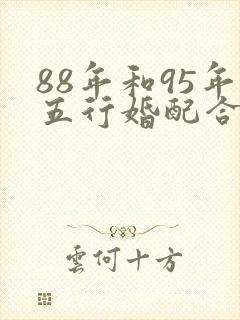 88年和95年
五行婚配合
雲何十方